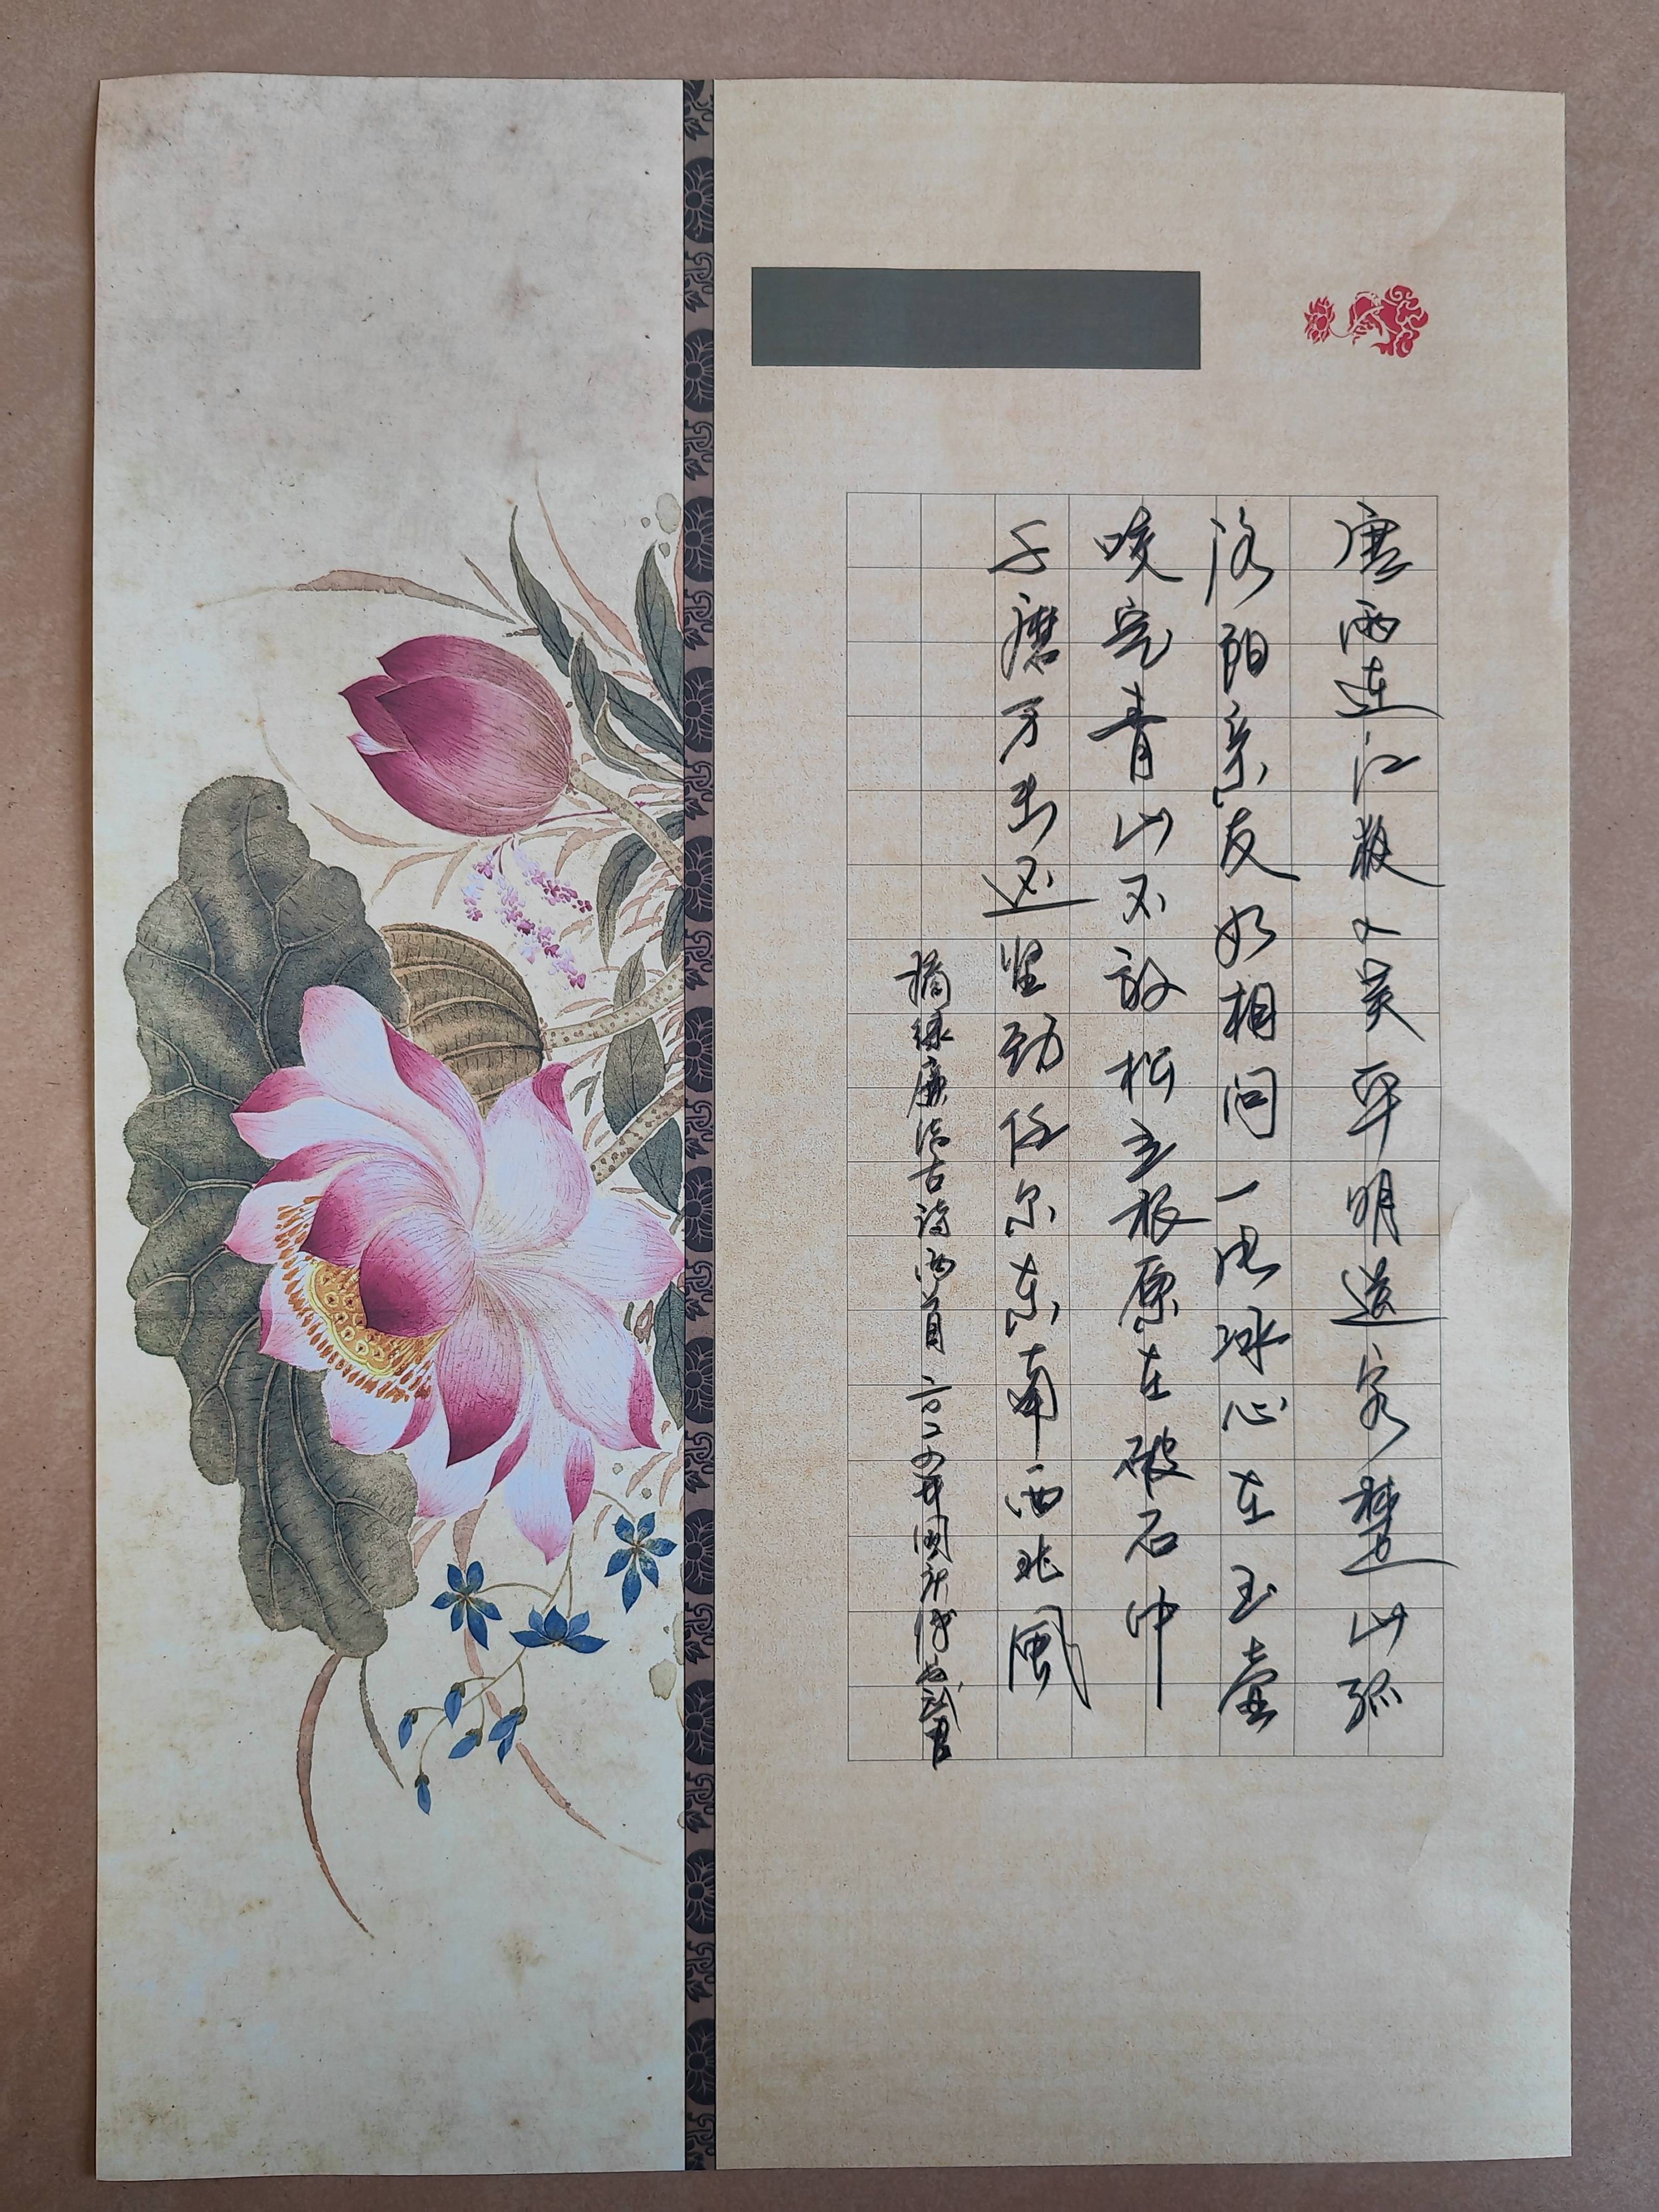 寒雨连江夜入吴平明送客楚山孤
洛阳亲友如相问一片冰心在玉壶
咬定青山不放松立根原在破石中
千磨万击还坚劲任尔东南西北风
摘录廉洁古诗两首 二〇二四年国庆